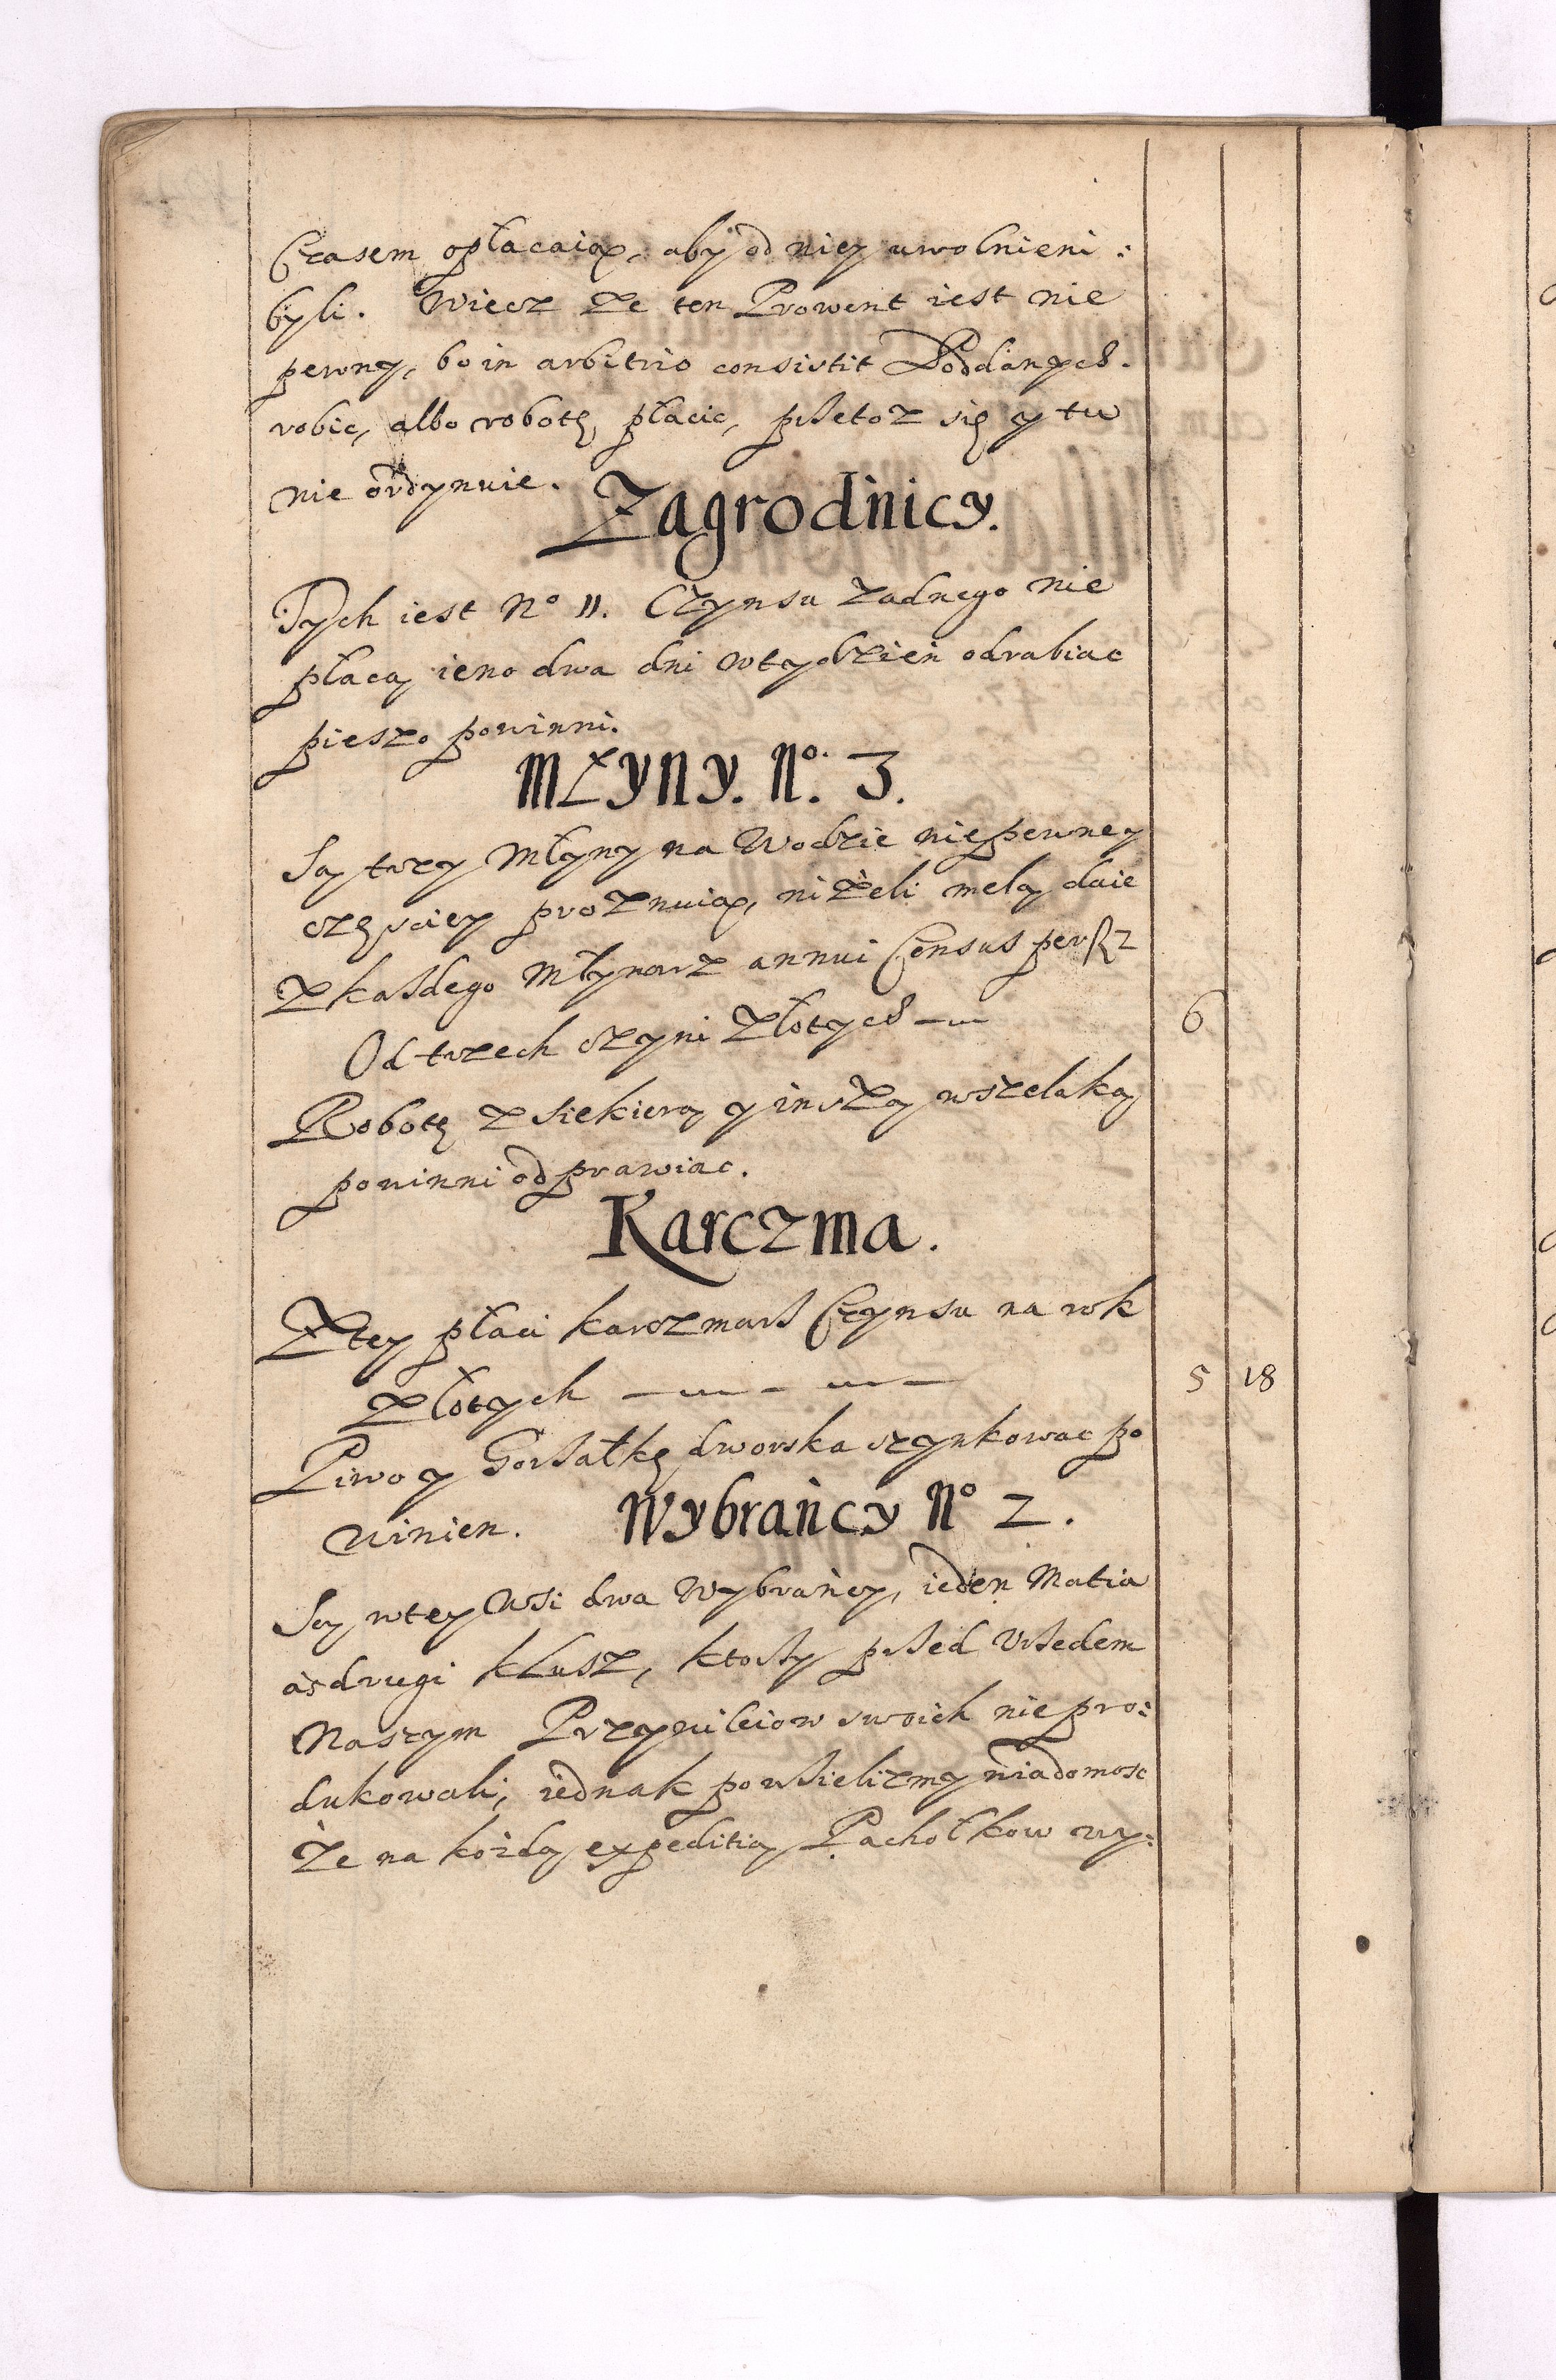 Czasem opłacaią, aby od niey uwolnieni:
byli. Więcz ze ten Prowent iest nie
pewny, bo in arbitrio consistit Poddanych.
robic, albo robotę płacic, przetoz się y tu
nie ordynuie.
Zagrodnicy.
Tych iest No 11. Czynsu zadnego nie
płacą ieno dwa dni w tydzień odrabiac
pieszo powinni.
Młyny. No. 3.
Są trzy Młyny na Wodzie niepewney
częsciey proznuią, niżeli melą daie
z kazdego Młynarz annui Census per f 2
Od trzech czyni złotych — 6
Robotę z siekierą y inszą wszelaką
powinni odprawiac.
Karczma.
Z tey płaci karczmarz Czynsu na rok
złotych — — — 5 18
Piwo y Gorzałkę dworska szynkowac po
winien. Wybrańcy No 2.
Są w tey Wsi dwa Wybrańcy, ieden Matia
as drugi Klusz, ktorzy przed Urzedem
Naszym Przywileiow swoich nie pro:
dukowali, iednak powzielizmy wiadomosc
że na kożdą expeditią Pachołkow wy: